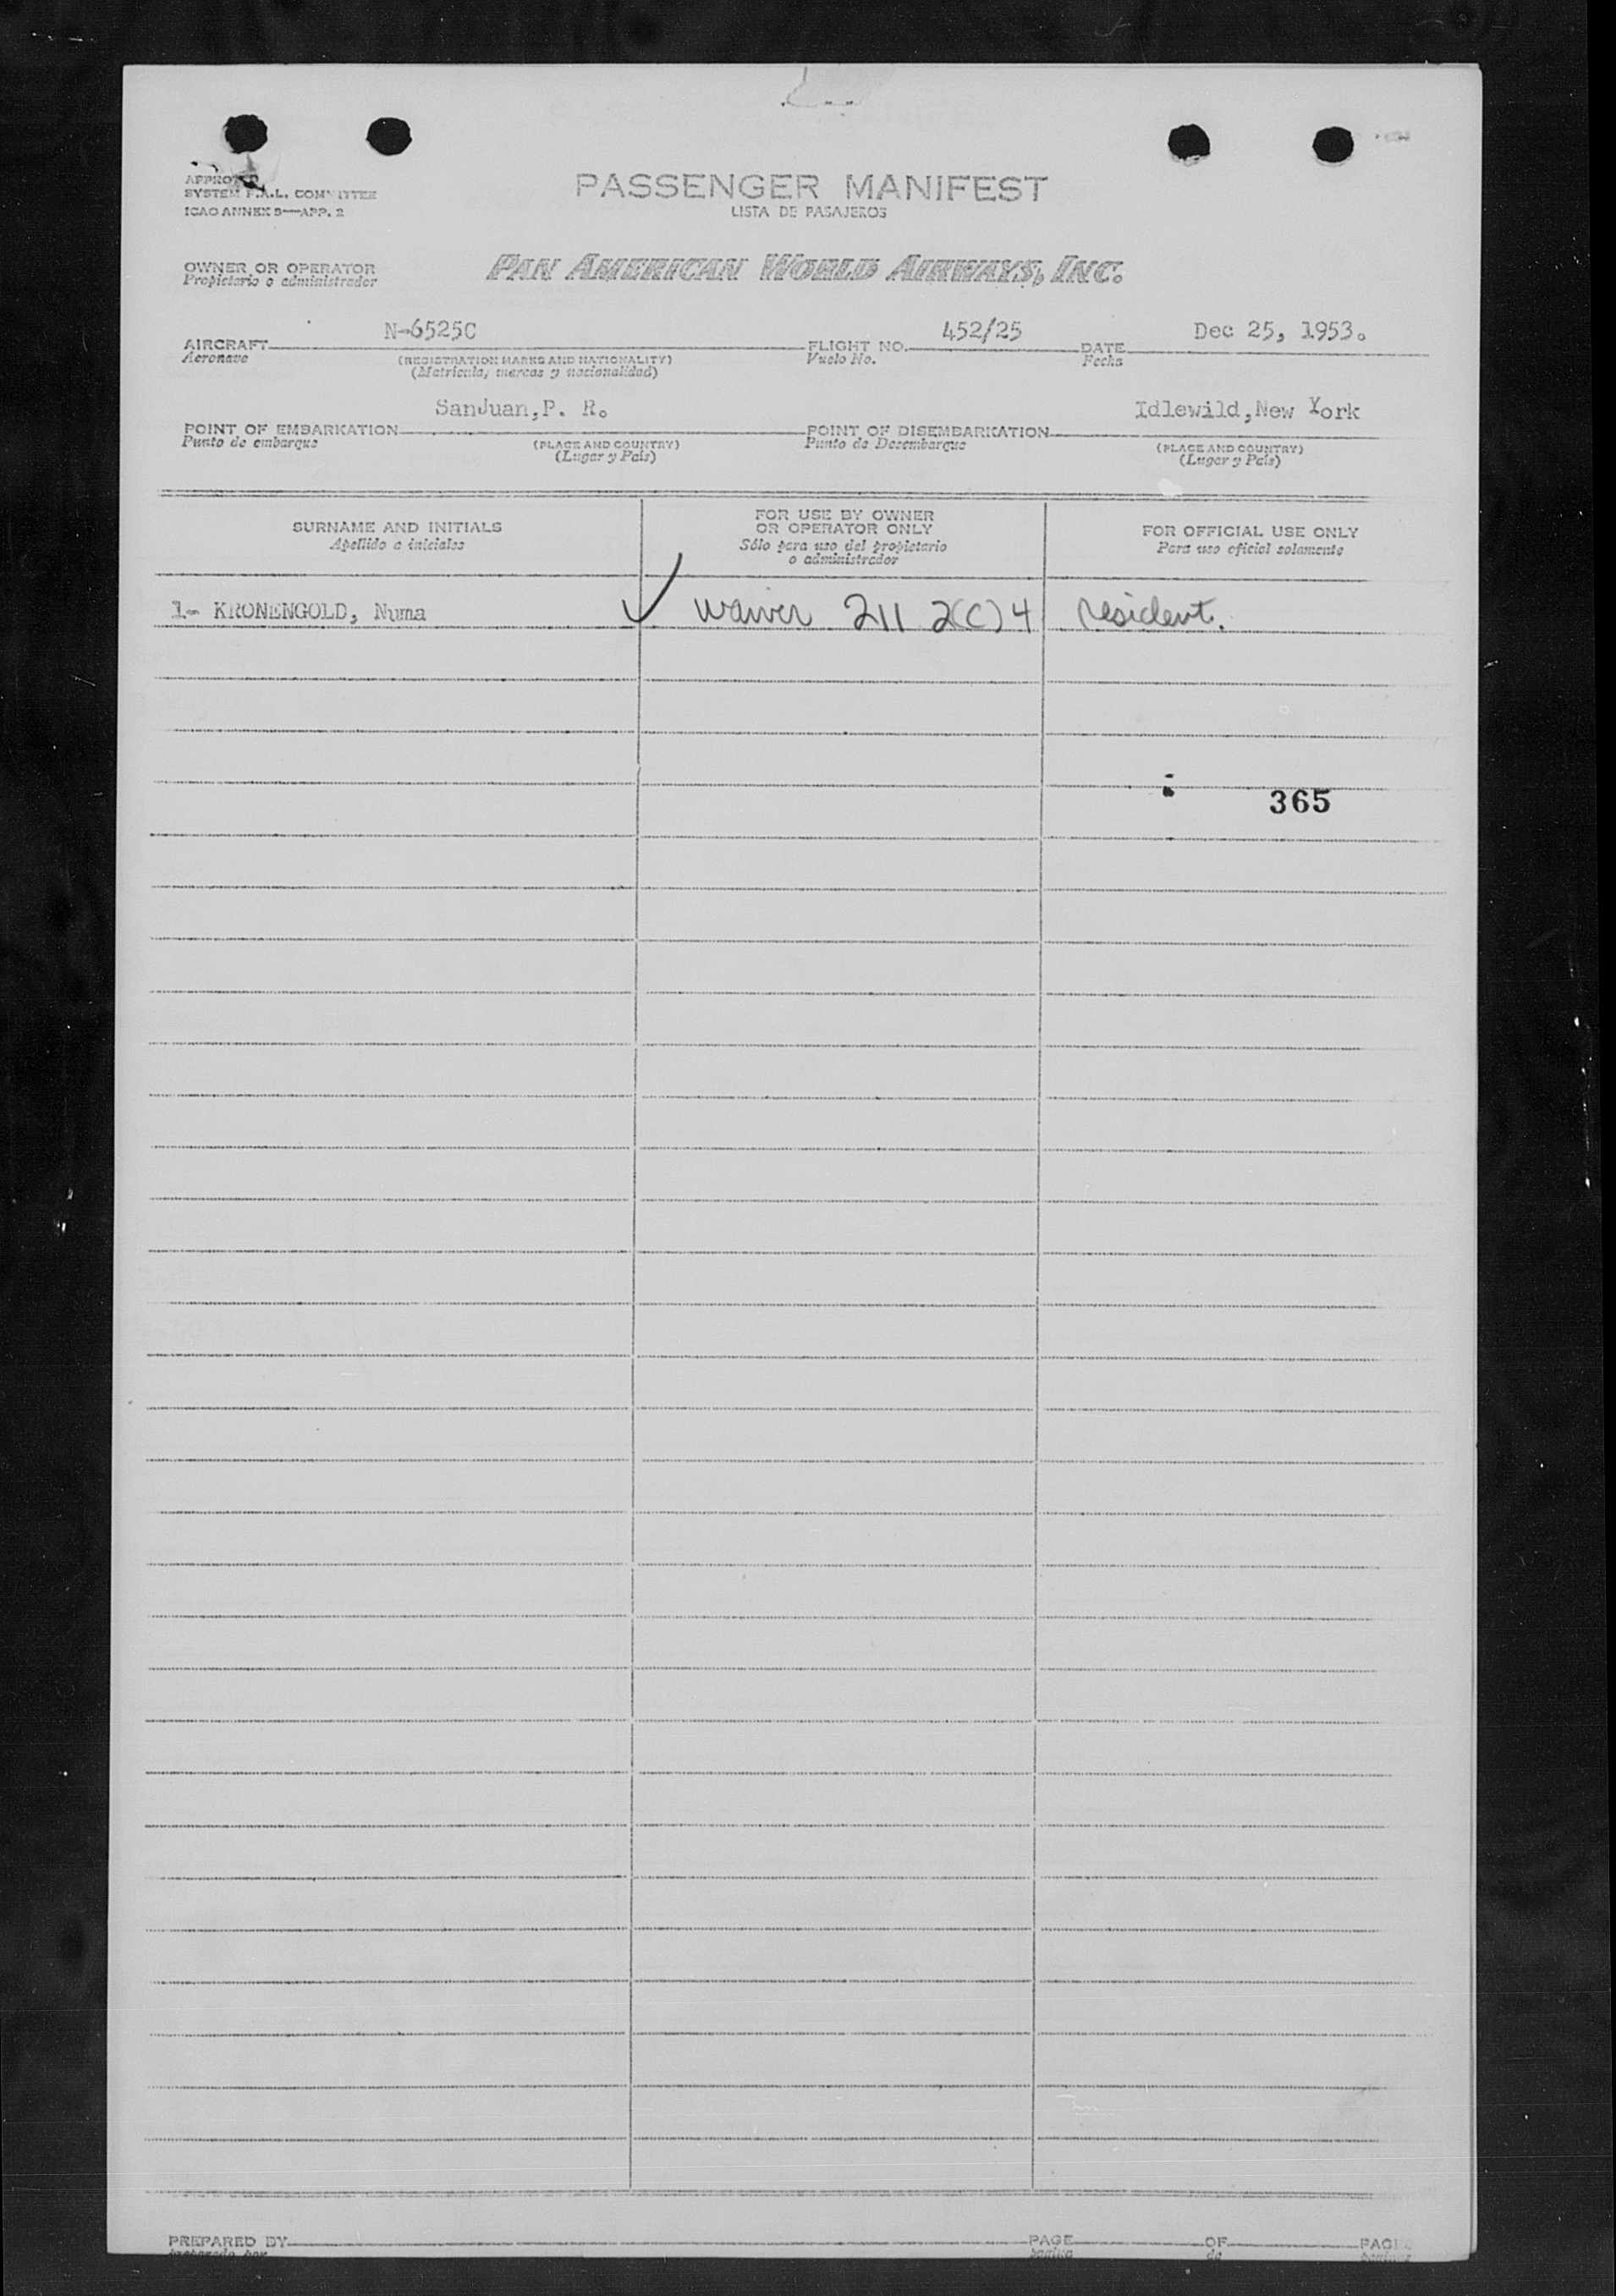 APPROVED
SYSTEM F.A.L. COMMITTEE
ICAO ANNEX 9—APP. 2
PASSENGER MANIFEST
LISTA DE PASAJEROS
OWNER OR OPERATOR
Propietario o administrador
PAN AMERICAN WORLD AIRWAYS, INC.
AIRCRAFT N-6525C FLIGHT NO. 452/25 DATE Dec 25, 1953.
Aeronave (REGISTRATION MARKS AND NATIONALITY) Vuelo No. Fecha
(Matricula, marcas y nacionalidad)
POINT OF EMBARKATION SanJuan,P. R. POINT OF DISEMBARKATION Idlewild,New York
Punto de embarque (PLACE AND COUNTRY) Punto de Desembarque (PLACE AND COUNTRY)
(Lugar y País) (Lugar y País)
SURNAME AND INITIALS
Apellido e iniciales
FOR USE BY OWNER
OR OPERATOR ONLY
Sólo para uso del propietario
o administrador
FOR OFFICIAL USE ONLY
Para uso oficial solamente
1- KRONENGOLD, Numa ✓ Waiver 211 2(C)4 resident.
365
PREPARED BY PAGE OF PAGE